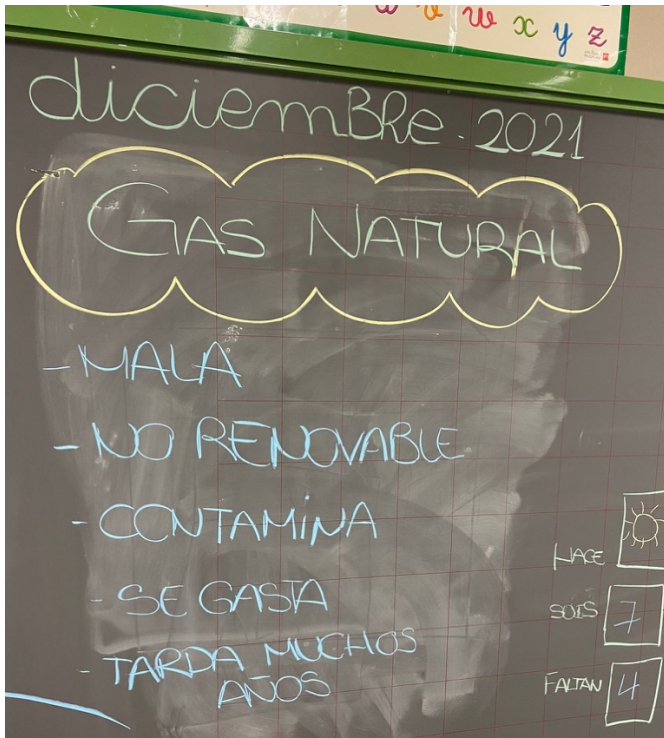 w v w x y z
diciemBRe. 2021
GAS NATURAL
- MALA
- NO RENOVABLE
- CONTAMINA
- SE GASTA
- TARDA MUCHOS
AÑOS
HACE
SOIS 7
FALTAN 4